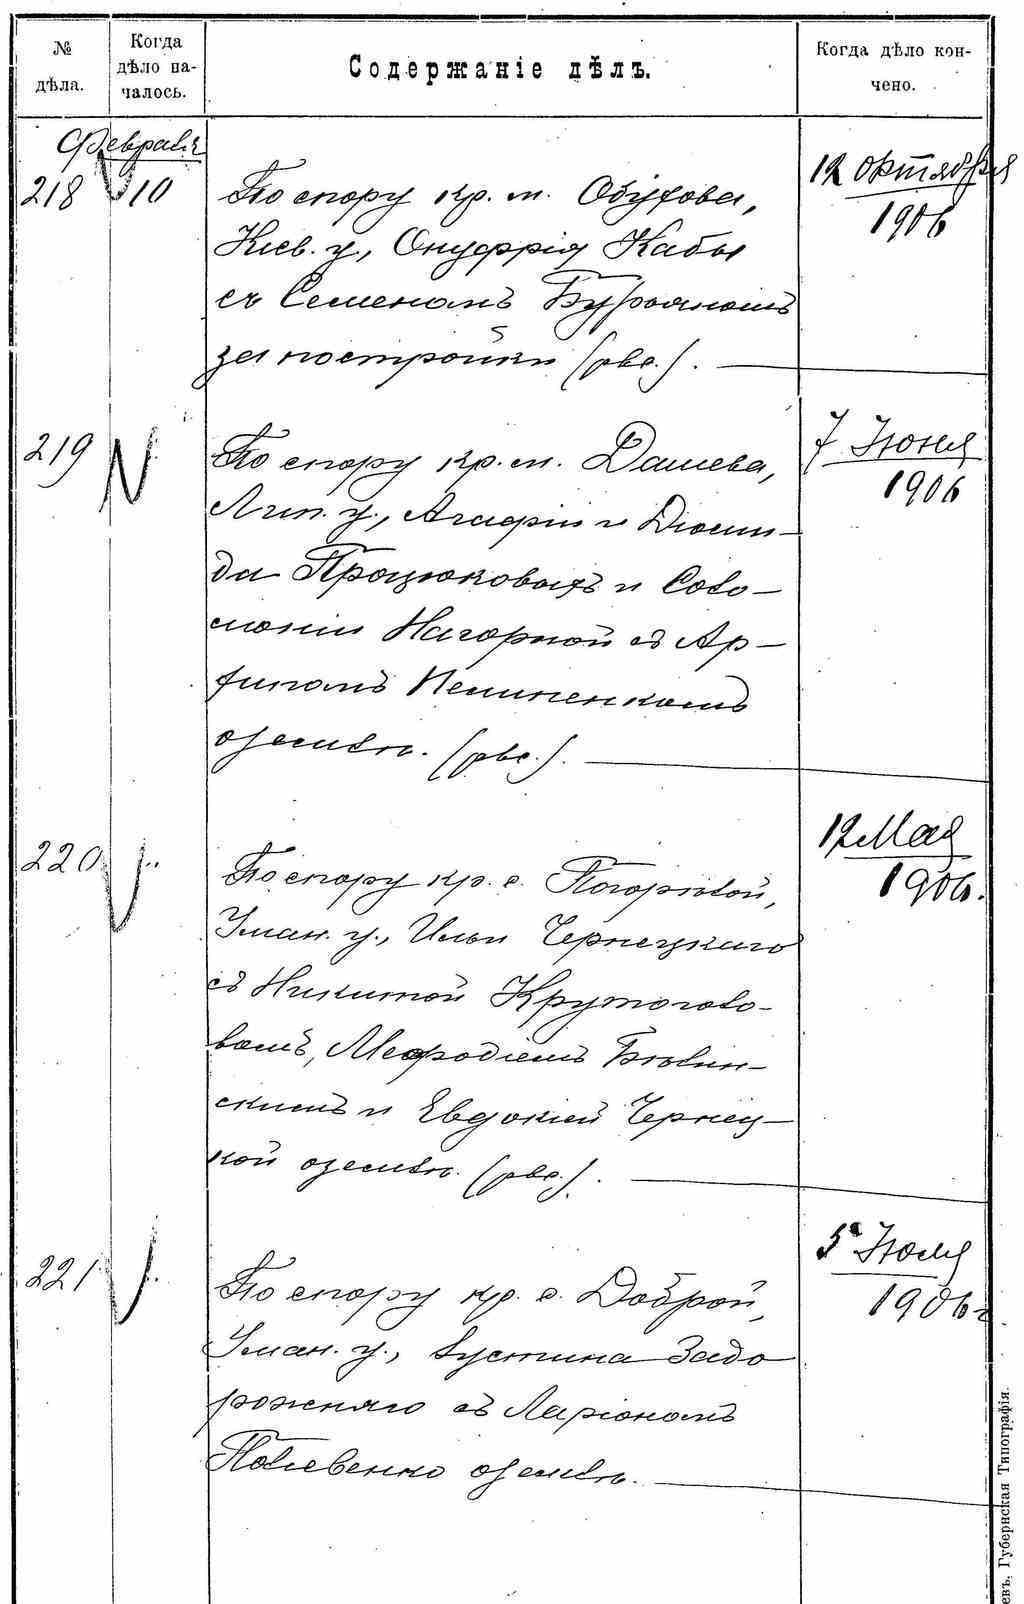 № дѣла.
Когда дѣло на-
чалось.
Содержаніе дѣлъ.
Когда дѣло кон-
чено.
Февраля
218 10
По спору кр. м. Обухова,
Кіев. у., Онуфрія Кабы
съ Семеномъ Бурьяномъ
за постройки (рве.).
12 октября
1906
219
По спору кр. м. Дашева,
Лип. у., Агафіи и Діоми-
да Процюковыхъ и Соло-
моніи Нагорной съ Ар-
хипомъ Пемпенкомъ
о землѣ. (рве.).
7 Іюня
1906
220
По спору кр. с. Погорѣлой,
Уман. у., Ильи Чернецкаго
съ Никитой Крутоголо-
вомъ, Меѳодіемъ Бѣлин-
скимъ и Евдокіей Чернец-
кой о землѣ. (рве.).
12 Мая
1906.
221
По спору кр. с. Доброй,
Уман. у., Іустина Задо
рожняго съ Ларіономъ
о землѣ.
5 Іюля
1906 г
евъ. Губернская Типографія.